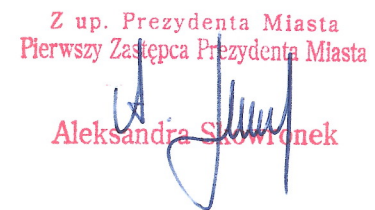 Z up. Prezydenta Miasta
Pierwszy Zastępca Prezydenta Miasta
Aleksandra Skowronek